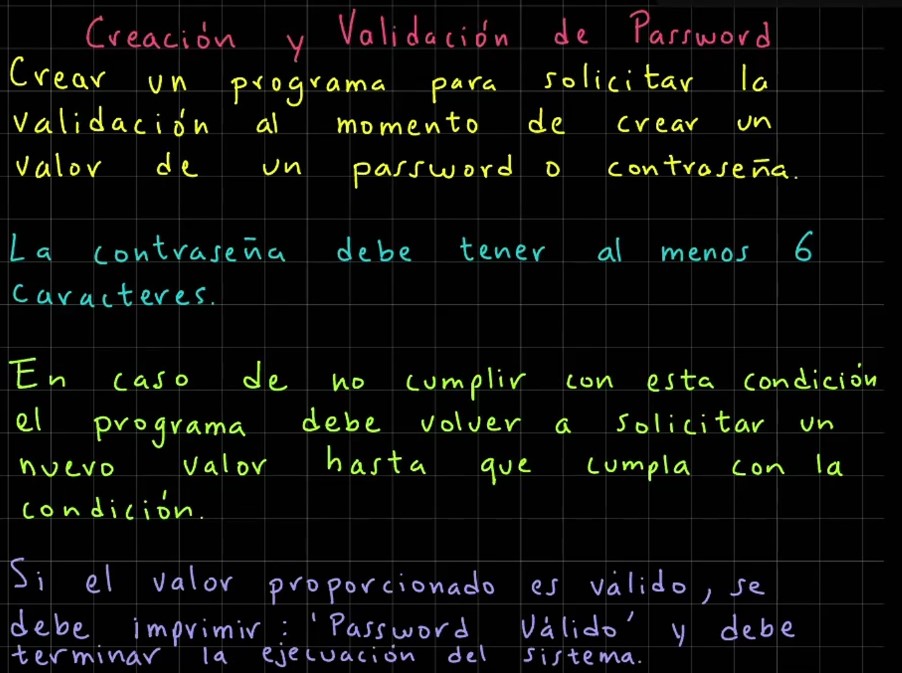 Creación y Validación de Password
Crear un programa para solicitar la
validación al momento de crear un
valor de un password o contraseña.
La contraseña debe tener al menos 6
caracteres.
En caso de no cumplir con esta condición
el programa debe volver a solicitar un
nuevo valor hasta que cumpla con la
condición.
Si el valor proporcionado es válido, se
debe imprimir: 'Password Válido' y debe
terminar la ejecuación del sistema.